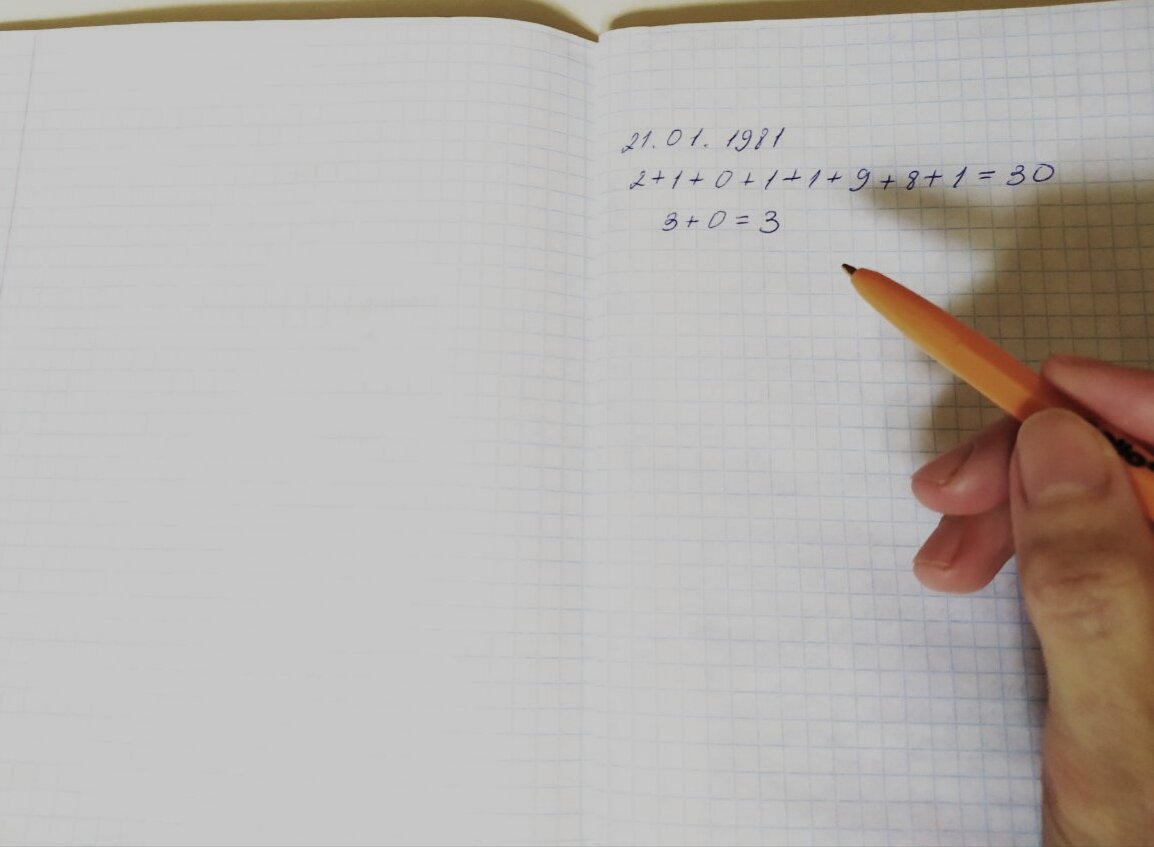 21.01.1981
2+1+0+1+1+9+8+1=30
3+0=3